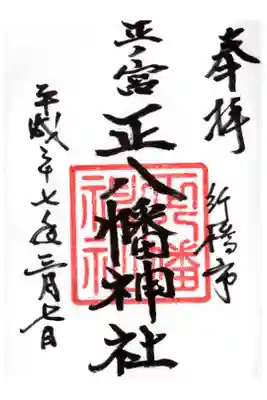 奉拝
行橋市
正宮
正八幡神社
平成二十七年三月七日
正八幡神社